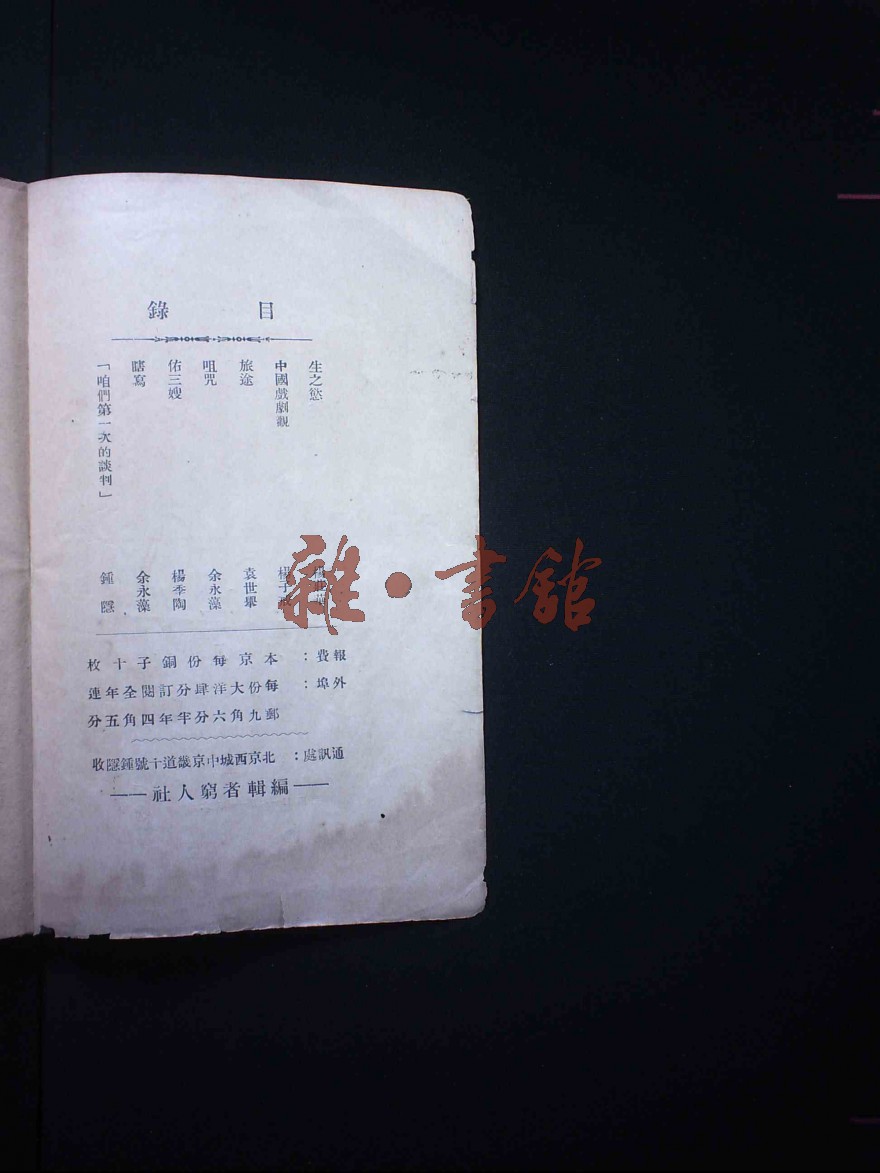 目錄
生之慾
中國戲劇觀 楊子戒
旅途 袁世畢
咀咒 余永藻
佑三嫂 楊季陶
瞎寫 余永藻
「咱們第一次的談判」 鍾隱
報費：本京每份銅子十枚
外埠：每份大洋肆分訂閱全年連
郵九角六分半年四角五分
通訊處：北京西城中京畿道十號鍾隱收
——編輯者窮人社——
雜·書館